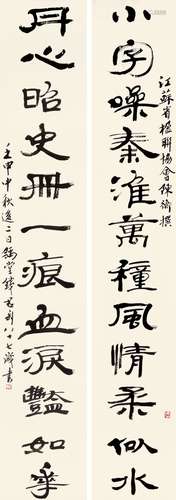 小字噪秦淮萬種風情柔似水
江蘇省楹聯協會陳衛撰
丹心昭史冊一痕血淚豔如華
壬申中秋過二日
八十七歲書